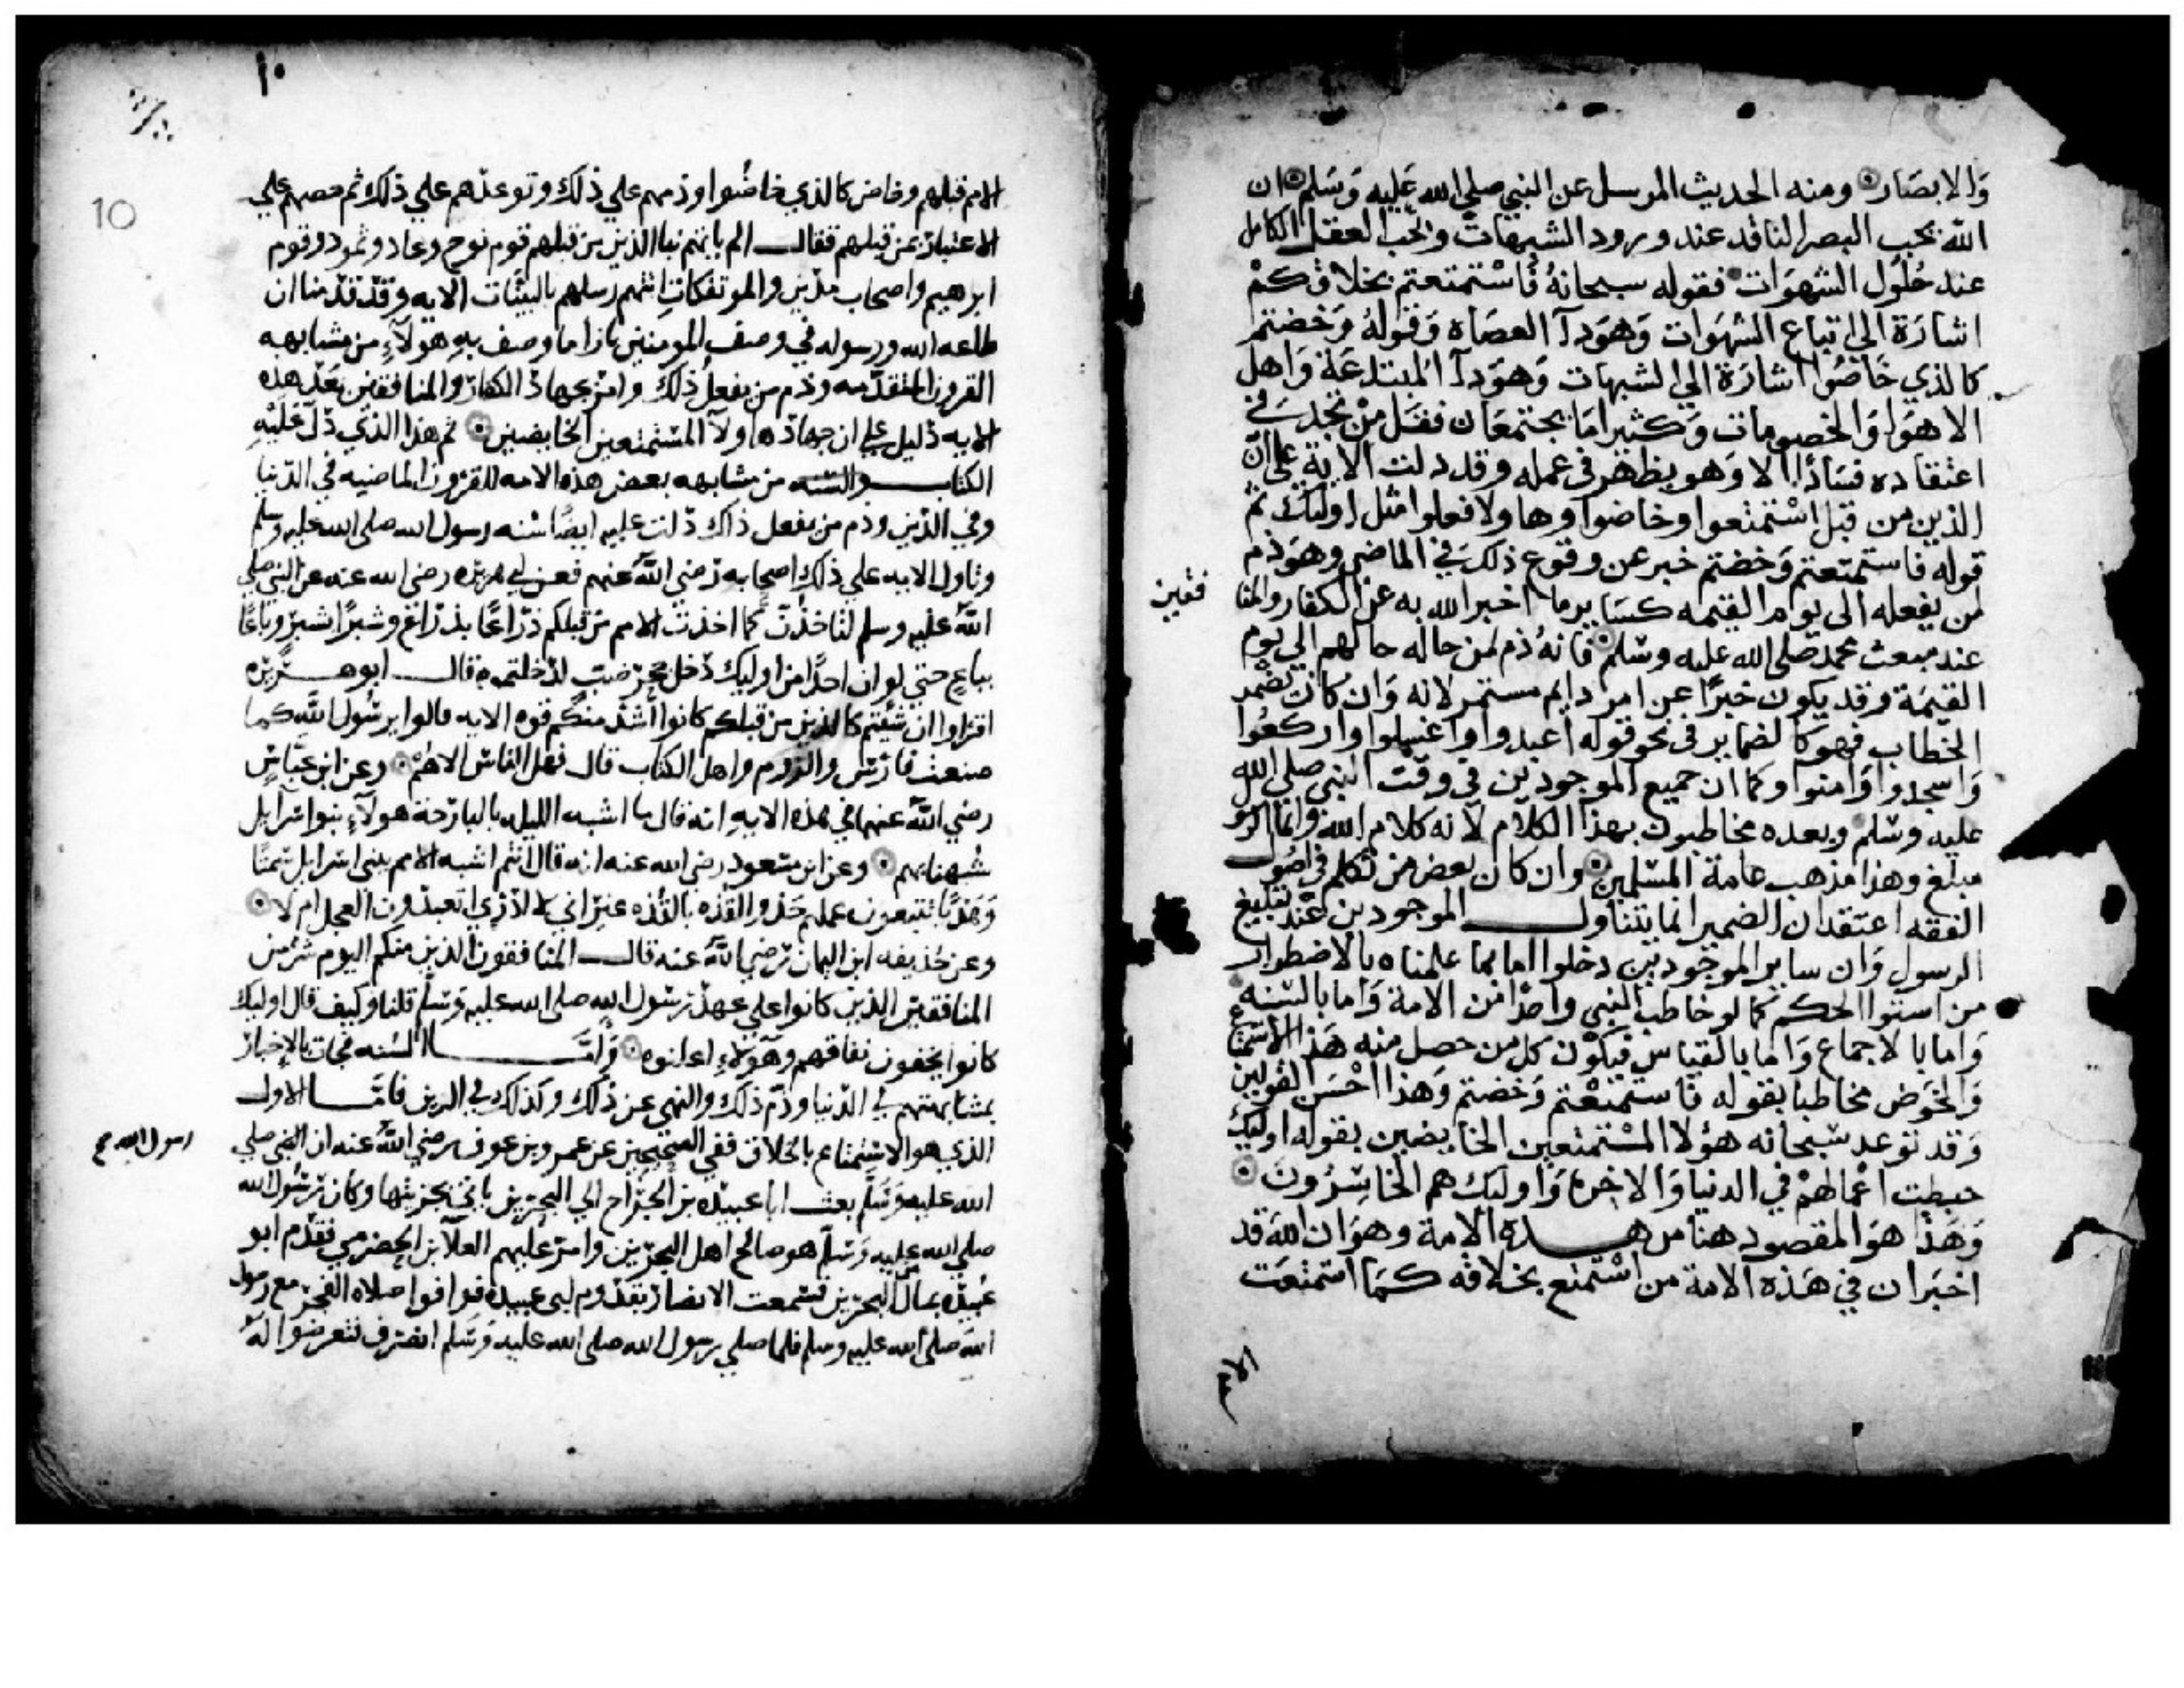 وَالابصَار ومنه الحديث المرسل عن النبي صلى الله عَليه وَسَلم ان
الله يحب البصر الناقد عند ورود الشبهات ويحب العقل الكامل
عند حُلُول الشهوَات فقوله سبحانهُ فَاسْتمتعتم بخلاقكمْ
اشارَة الى اتباع الشهوَات وَهوَ دآ العصَاه وَقولهُ وَخضتم
كالذي خَاضُوا اشارَة الي الشبهات وَهوَ دآ المبتدعَة وَاهل
الاهوَا وَالخصومات وَكثيرامَا يجتمعَان فقَل مَنْ تجد في
اعتقاده فسَادًا الا وَهو يظهر في عمله وقد دلت الاية على انّ
الذين من قبل اسْتمتعوا وخاضوا وهاولا فعلوا مثل اوليك ثم
قوله فاستمتعتم وَخضتم خبر عن وقوع ذلك في الماضي وهوَ ذم
لمن يفعله الى يوم القيمه كسَاير ما اخبر الله به عن الكفار والمنا
فقين
عند مبعث محمد صلى الله عليه وسَلم فانهُ ذم لمن حاله حالهم الي يوم
القيمَة وقد يكون خبرًا عن امر دايم مستمر لانه وَان كان بضمير
الخطاب فهوَ كالضماير في نحو قوله اعبدوا واغسلوا واركعُوا
وَاسجدوا وَامنوا وكما ان جميع الموجودين في وقت النبي صلى الله
عليه وسَلم وبعده مخاطبون بهذا الكلام لانه كلام الله وانما الرسو
مبلغ وهذا مذهب عامة المسْلمين وان كان بعض من تكلم في اصُول
الفقه اعتقد ان الضمير انما يتناول الموجودين عند تبليغ
الرسول وَان ساير الموجودين دخلوا اما بما علمناه بالاضطرار
من استوا الحكم كما لو خاطب النبي واحدًا من الامة وَاما بالسّنه
وَاما بالاجماع وَاما بالقياس فيكوْن كل من حصل منه هَذا الاستمتاع
وَالخوَض مخاطبا بقوله فاستمتعْتم وَخضتم وَهذا احْسَن القولين
وَقد توعد سبحانه هؤلا المسْتمتعين الخايضين بقوله اوليك
حبطت اعْمالهمْ في الدنيا وَالاخرة وَاوليك هم الخاسِرُونَ
وَهَذا هوَ المقصود هنا من هذه الامة وهوَ ان الله قد
اخبَر ان في هَذه الامة من اسْتمتع بخلاقه كمَا استمتعَت
١٠
10
الامم قبلهم وخاض كالذي خاضُوا وذمهم علي ذلك وتوعدهم علي ذلك ثم حضهم علي
الاعتبار بمن قبلهم فقال الم ياتهم نبا الذين من قبلهم قوم نوح وعاد وثمود وقوم
ابرهيم واصحاب مدين والموتفكات اتتهم رسلهم بالبينات الايه وقد قدمنا ان
طاعه الله ورسوله في وصف المومنين بازا ما وصف به هولآء من مشابهه
القرون المتقدمه وذم من يفعل ذلك وامره بجهاد الكفار والمنافقين بعد هذه
الايه دليل علي ان جهاد هاولآ المستمتعين الخايضين ثم هذا الذي دل عَليْه
الكتاب والسنه من مشابهه بعض هذه الامه للقرون الماضيه في الدنيا
وفي الدين وذم من يفعل ذاك دلت عليه ايضًا سنه رسول الله صلى الله عليه وسلم
وتاول الايه علي ذلك اصحابه رضي الله عنهم فعن ابي هريره رضى الله عنه عن النبي صلى
الله عليه وسلم لتاخذن كما اخذت الامم من قبلكم ذراعًا بذراع وشبرًا بشبر وباعًا
بباع حتي لو ان احدًا من اوليك دخل جحر ضب لدخلتموه قال ابو هريره
اقراوا ان شيتم كالذين من قبلكم كانوا اشد منكم قوه الايه قالوا يرسُول الله كما
صنعت فارس والروم واهل الكتاب قال فهل الناس الا هُمْ وعن ابن عباس
رضي الله عنهما في هذه الايه انه قال ما اشبه الليله بالبارحة هولآء بنوا اسرآيل
شُبهنا بهم وعن ابن مسعود رضى الله عنه انه قال انتم اشبه الامم ببني اسرايل سمتًا
وَهَدْيًا تتبعون عملهم حَذو القذه بالقُذه غير اني لا ادري اتعبدون العجل ام لا
وعن حُذيفه ابن اليمان رضي الله عنه قال المنافقون الذين منكم اليوم شر من
المنافقين الذين كانوا علي عهد رسول الله صلى الله عليه وسلم قلنا وكيف قال اوليك
كانوا يخفون نفاقهم وهَوٌلآء اعلنوه وَامَّا السُنه فجات بالاخبار
بمشابهتهم في الدّنيا وذم ذلك والنهي عن ذلك وكذلك في الدين فامّا الاول
الذي هو الاسْتمتاع بالخلاق ففي الصحيحين عن عمرو بن عوف رضي الله عنه ان النبي صلي
رسول الله
الله عليه وَسَلم بعث ابا عبيده بن الجراح الي البحرين ياتي بجزيتها وكان رسُول الله
صلي الله عليه وَسلم هو صالح اهل البحرين وامر عليهم العلآ بن الحضرمي فقدم ابو
عُبيْده بمال البحرين فسمعت الانصار بقدوم ابي عبيدة فوافوا صلاه الفجر مع رسول
الله صلى الله عليه وسلم فلما صلي رسول الله صلى الله عليه وَسلم انصرف فتعرضوا له